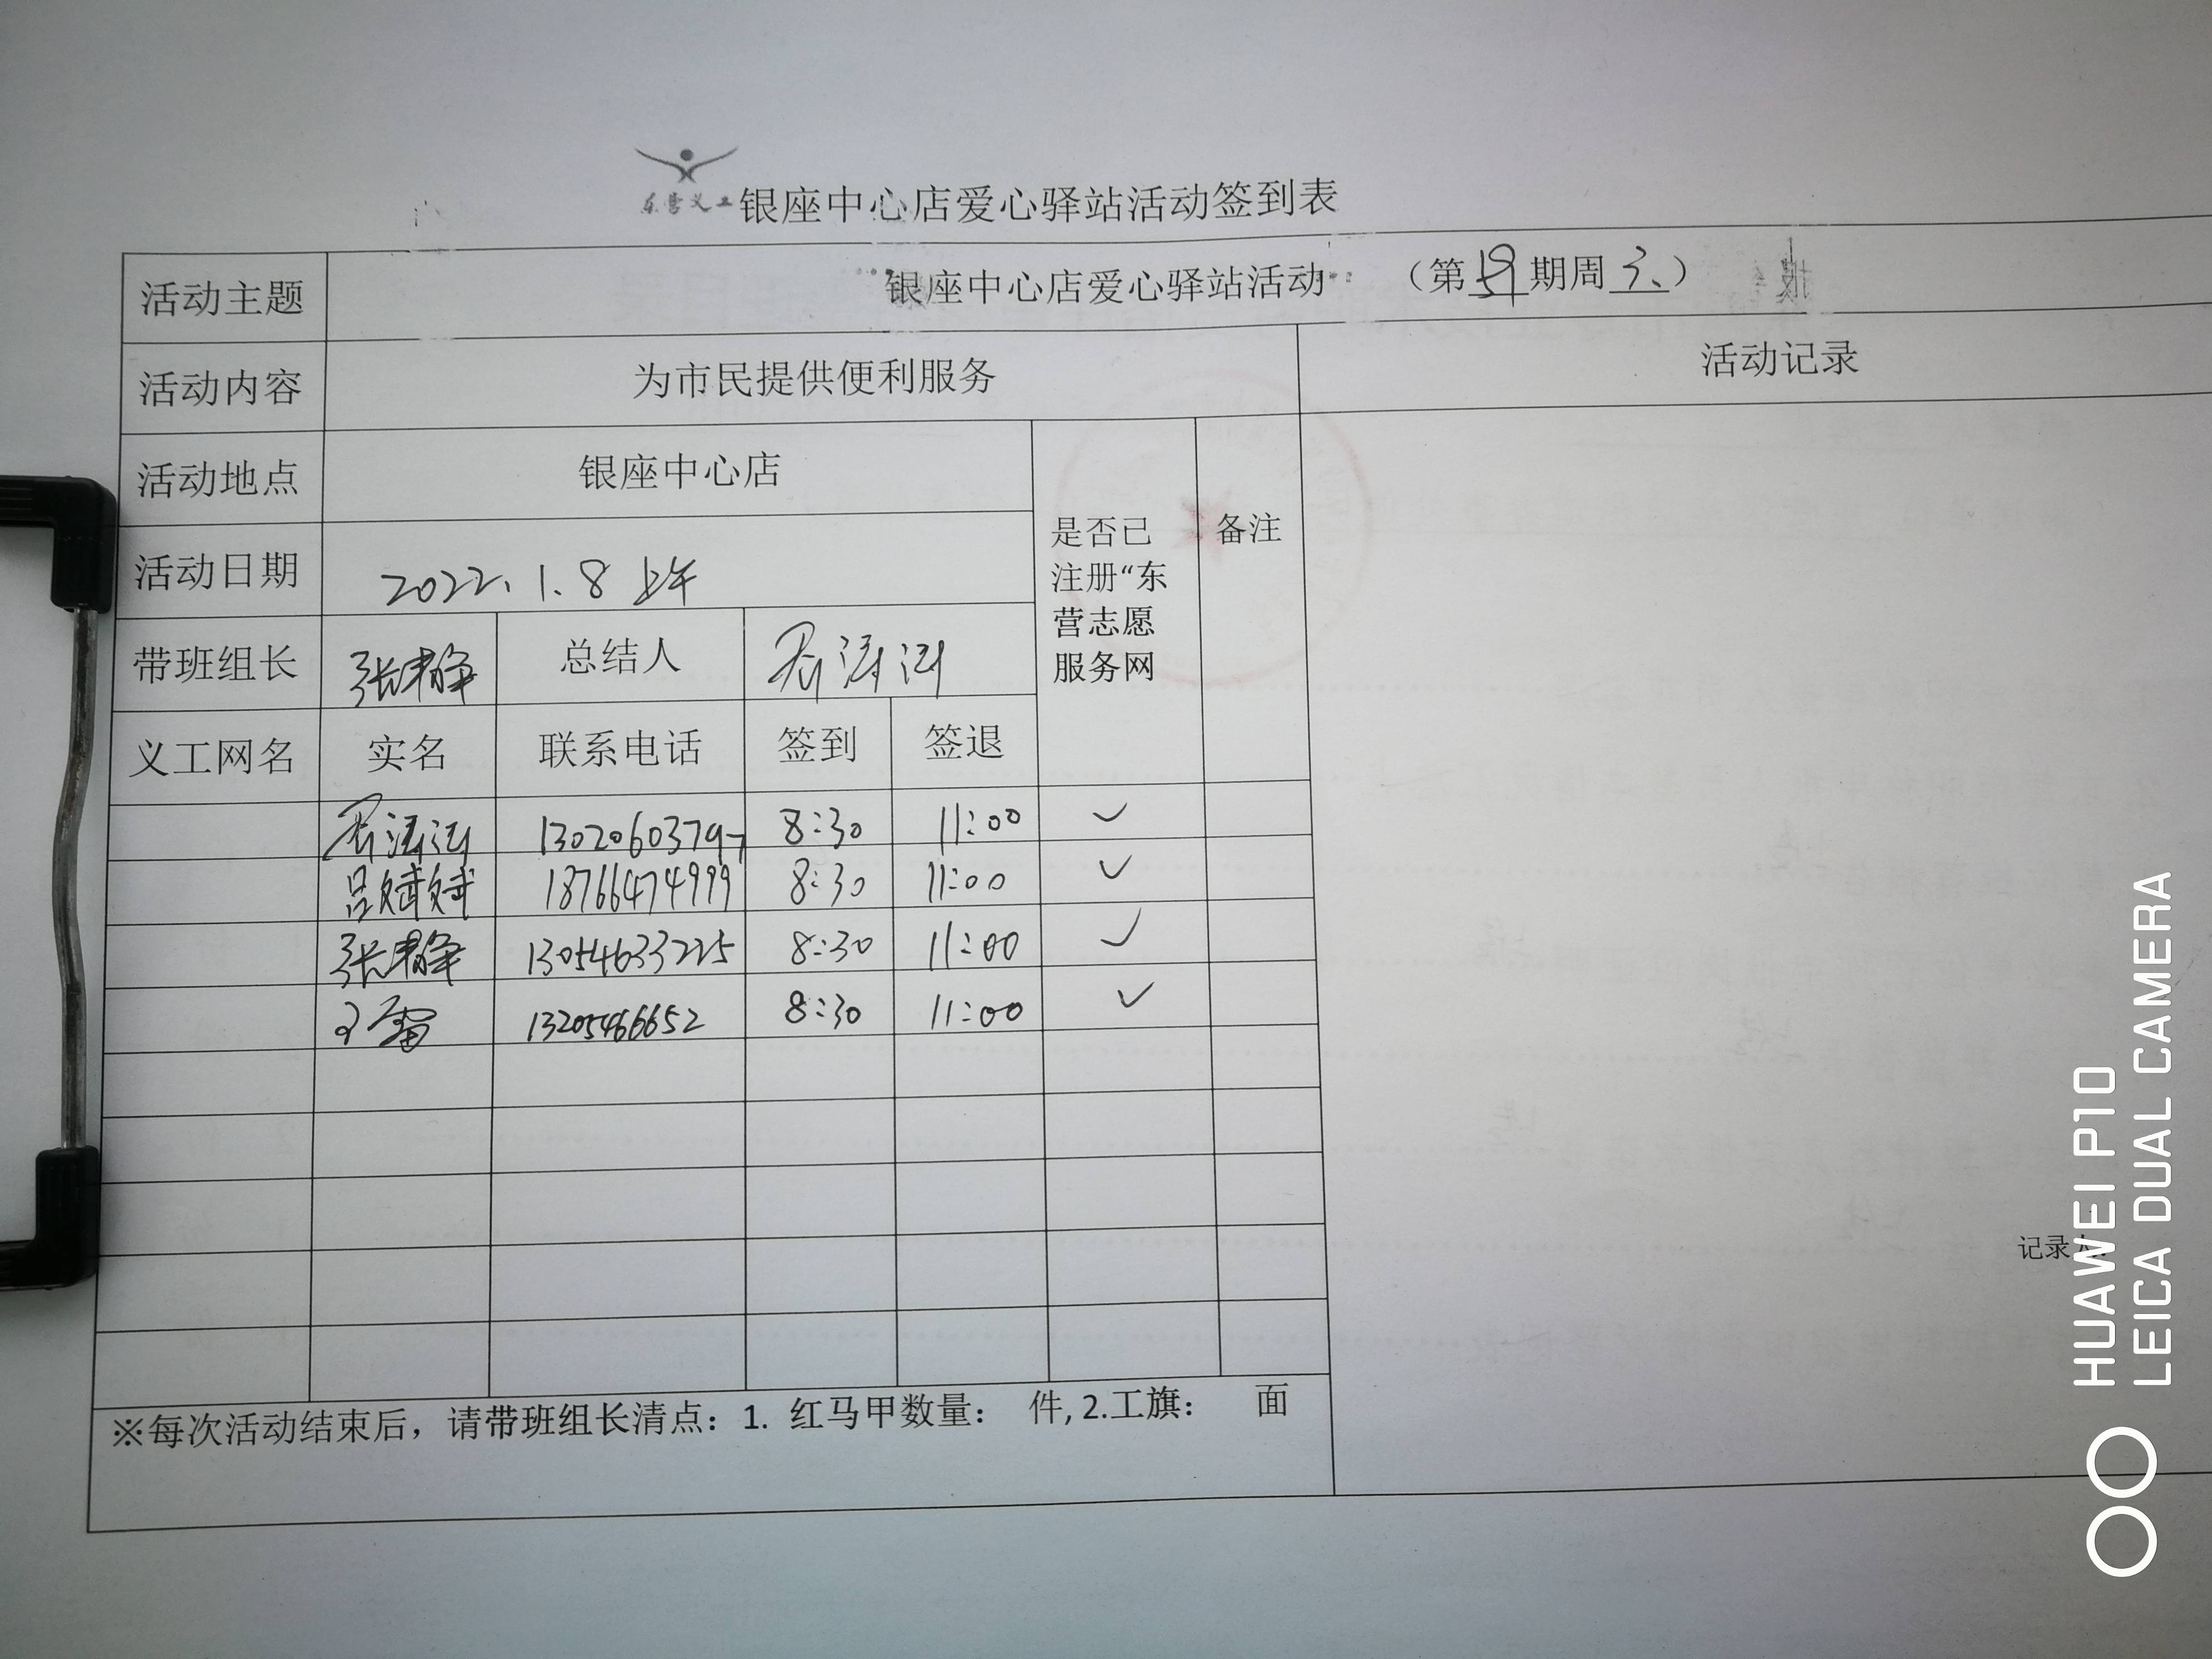 东营义工 银座中心店爱心驿站活动签到表
活动主题 银座中心店爱心驿站活动 （第 期周 ）
活动内容 为市民提供便利服务 活动记录
活动地点 银座中心店
是否已注册“东营志愿服务网 备注
活动日期 2022.1.8 上午
带班组长 张静 总结人
义工网名 实名 联系电话 签到 签退
13020603797 8:30 11:00 ✓
吕斌斌 18766474999 8:30 11:00 ✓
张静 13054633225 8:30 11:00 ✓
王雷 13205466652 8:30 11:00 ✓
记录人:
※每次活动结束后，请带班组长清点：1. 红马甲数量： 件, 2.工旗： 面
HUAWEI P10
LEICA DUAL CAMERA